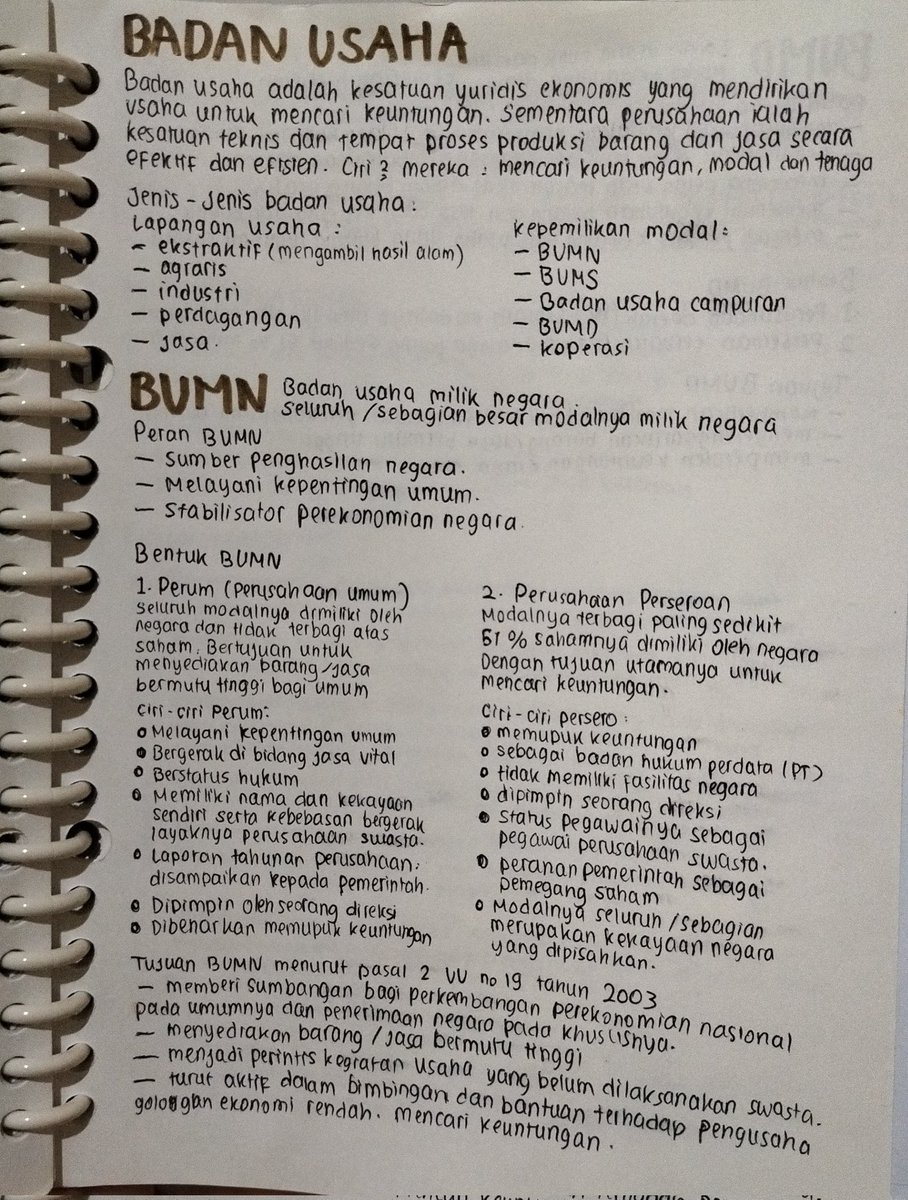 BADAN USAHA
Badan usaha adalah kesatuan yuridis ekonomis yang mendirikan
usaha untuk mencari keuntungan. Sementara perusahaan ialah
kesatuan teknis dan tempat proses produksi barang dan jasa secara
efektif dan efisien. Ciri 3 mereka : mencari keuntungan, modal dan tenaga
Jenis - Jenis badan usaha :
Lapangan usaha :
- ekstraktif (mengambil hasil alam)
- agraris
- industri
- perdagangan
- jasa.
kepemilikan modal :
- BUMN
- BUMS
- Badan usaha campuran
- BUMD
- koperasi
BUMN Badan usaha milik negara.
seluruh / sebagian besar modalnya milik negara
Peran BUMN
- Sumber penghasilan negara.
- Melayani kepentingan umum.
- Stabilisator perekonomian negara.
Bentuk BUMN
1. Perum (perusahaan umum)
seluruh modalnya dimiliki oleh
negara dan tidak terbagi atas
saham. Bertujuan untuk
menyediakan barang/jasa
bermutu tinggi bagi umum
Ciri-ciri Perum:
• Melayani kepentingan umum
• Bergerak di bidang jasa vital
• Berstatus hukum
• Memiliki nama dan kekayaan
sendiri serta kebebasan bergerak
layaknya perusahaan swasta.
• Laporan tahunan perusahaan
disampaikan kepada pemerintah.
• Dipimpin oleh seorang direksi
• Dibenarkan memupuk keuntungan
2. Perusahaan Perseroan
Modalnya terbagi paling sedikit
51 % sahamnya dimiliki oleh negara
Dengan tujuan utamanya untuk
mencari keuntungan.
Ciri-ciri persero :
• memupuk keuntungan
• sebagai badan hukum perdata (PT)
• tidak memiliki fasilitas negara
• dipimpin seorang direksi
• Status pegawainya sebagai
pegawai perusahaan swasta.
• peranan pemerintah sebagai
pemegang saham
• Modalnya seluruh / sebagian
merupakan kekayaan negara
yang dipisahkan.
Tujuan BUMN menurut pasal 2 UU no 19 tahun 2003
- memberi sumbangan bagi perkembangan perekonomian nasional
pada umumnya dan penerimaan negara pada khususnya.
- menyediakan barang / jasa bermutu tinggi
- menjadi perintis kegiatan usaha yang belum dilaksanakan swasta.
- turut aktif dalam bimbingan dan bantuan terhadap pengusaha
golongan ekonomi rendah. mencari keuntungan.